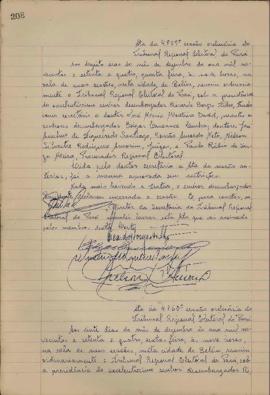 208
Ata da 4959ª sessão ordinária do
Tribunal Regional Eleitoral do Pará
Aos dezoito dias do mês de dezembro do ano mil no-
vecentos e setenta e quatro, quarta feira, às nove horas, na
sala de suas sessões, nesta cidade de Belém, reuniu ordinaria-
mente o Tribunal Regional Eleitoral do Pará, sob a presidência
do excelentíssimo senhor desembargador Ricardo Borges Filho, tendo
como secretário o doutor José Maria Monteiro David, presentes os
senhores desembargador Edgar Lassance Cunha, doutores
de Figueiredo Santiago, Nelson
Silvestre Rodrigues Amorim, juízes, e Paulo Rúbio de Sou-
za Meira, Procurador Regional Eleitoral.
Lida pelo doutor secretário a ata da sessão an-
terior, foi a mesma aprovada sem restrição.
Nada mais havendo a tratar, o senhor desembargador
encerrada a sessão. E para constar, eu
diretor da Secretaria do Tribunal Regional
Eleitoral do Pará, mandei lavrar esta ata que vai assinada
pelos membros desta Corte.
Ata da 4960ª sessão ordinária do
Tribunal Regional Eleitoral do Pará
Aos vinte dias do mês de dezembro do ano mil no-
vecentos e setenta e quatro, sexta feira, às nove horas,
na sala de suas sessões, nesta cidade de Belém, reuniu
ordinariamente o Tribunal Regional Eleitoral do Pará, sob
a presidência do excelentíssimo senhor desembargador Ri-